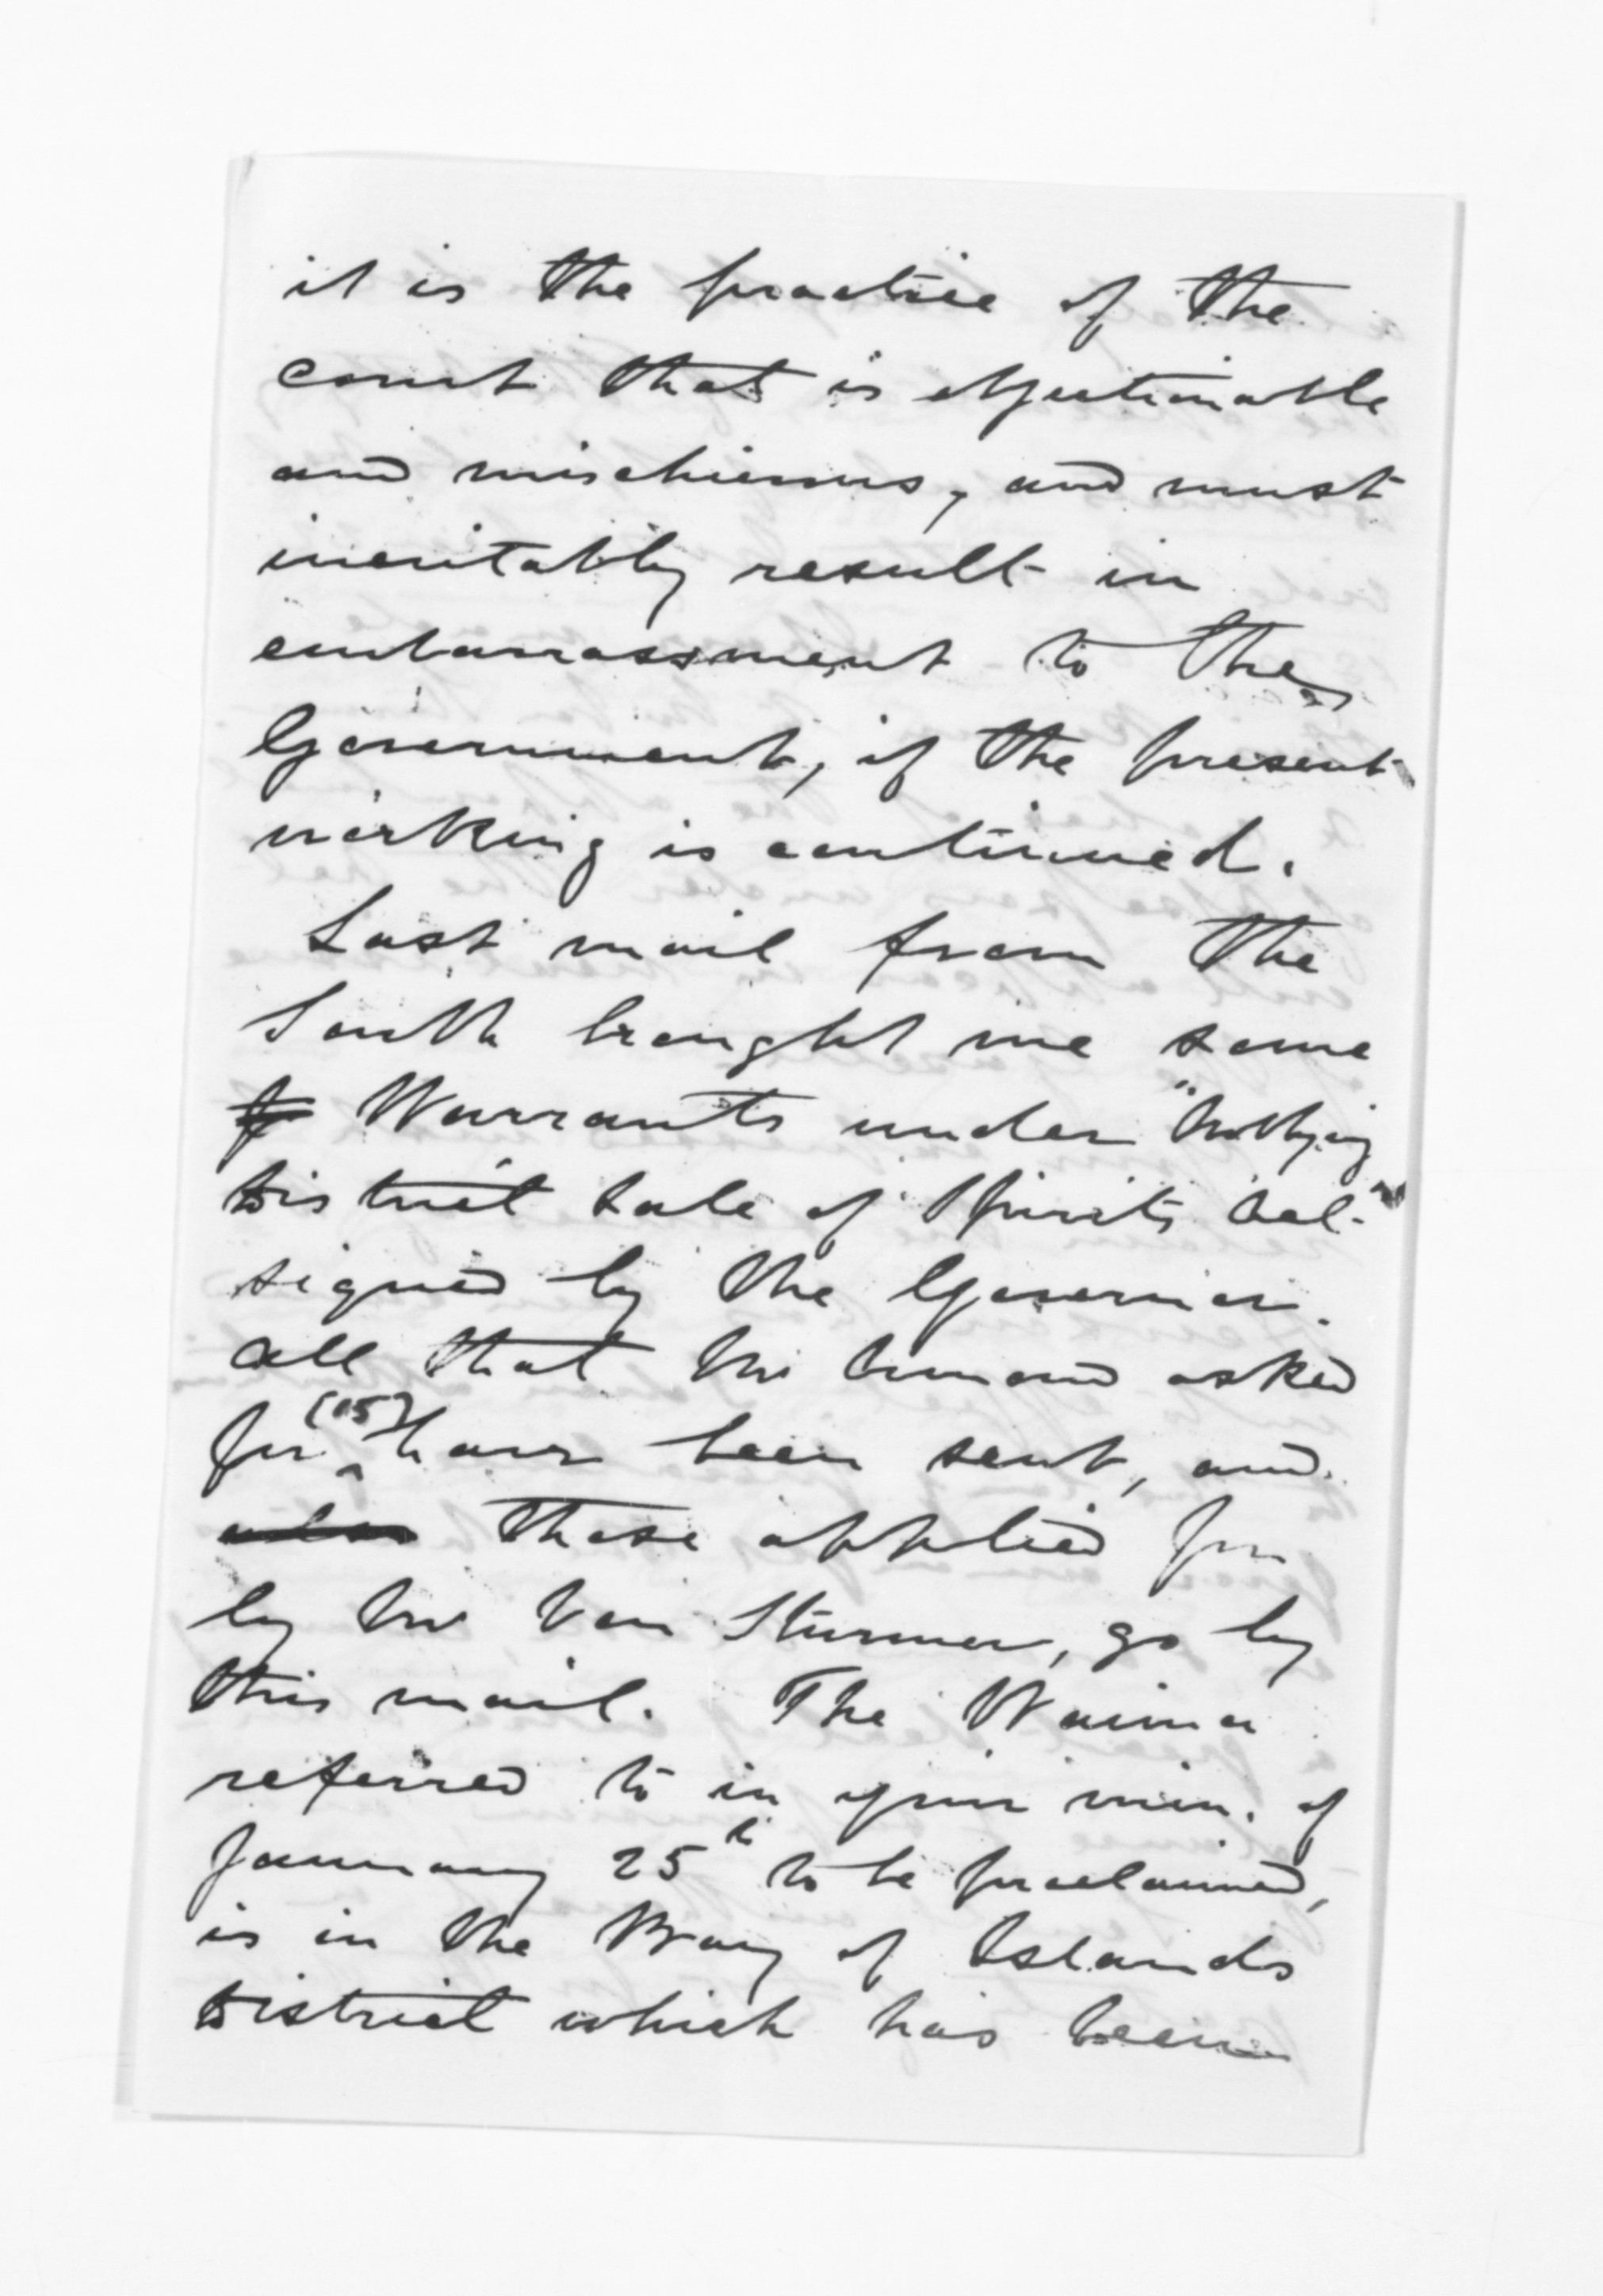 it is the practice of the
court that is objectionable
and mischievous, and must
inevitably result in
embarrassment to the
Government, if the present
working is continued.
Last mail from the
South brought me some
Warrants under "Outlying
District Sale of Spirits Act"
signed by the Governor.
All that Mr Armand asked
for (15) have been sent, and
also those applied for
by Mr Von Sturmer, go by
this mail. The Waima
referred to in your mem. of
January 25th to be proclaimed,
is in the Bay of Islands
District which has been